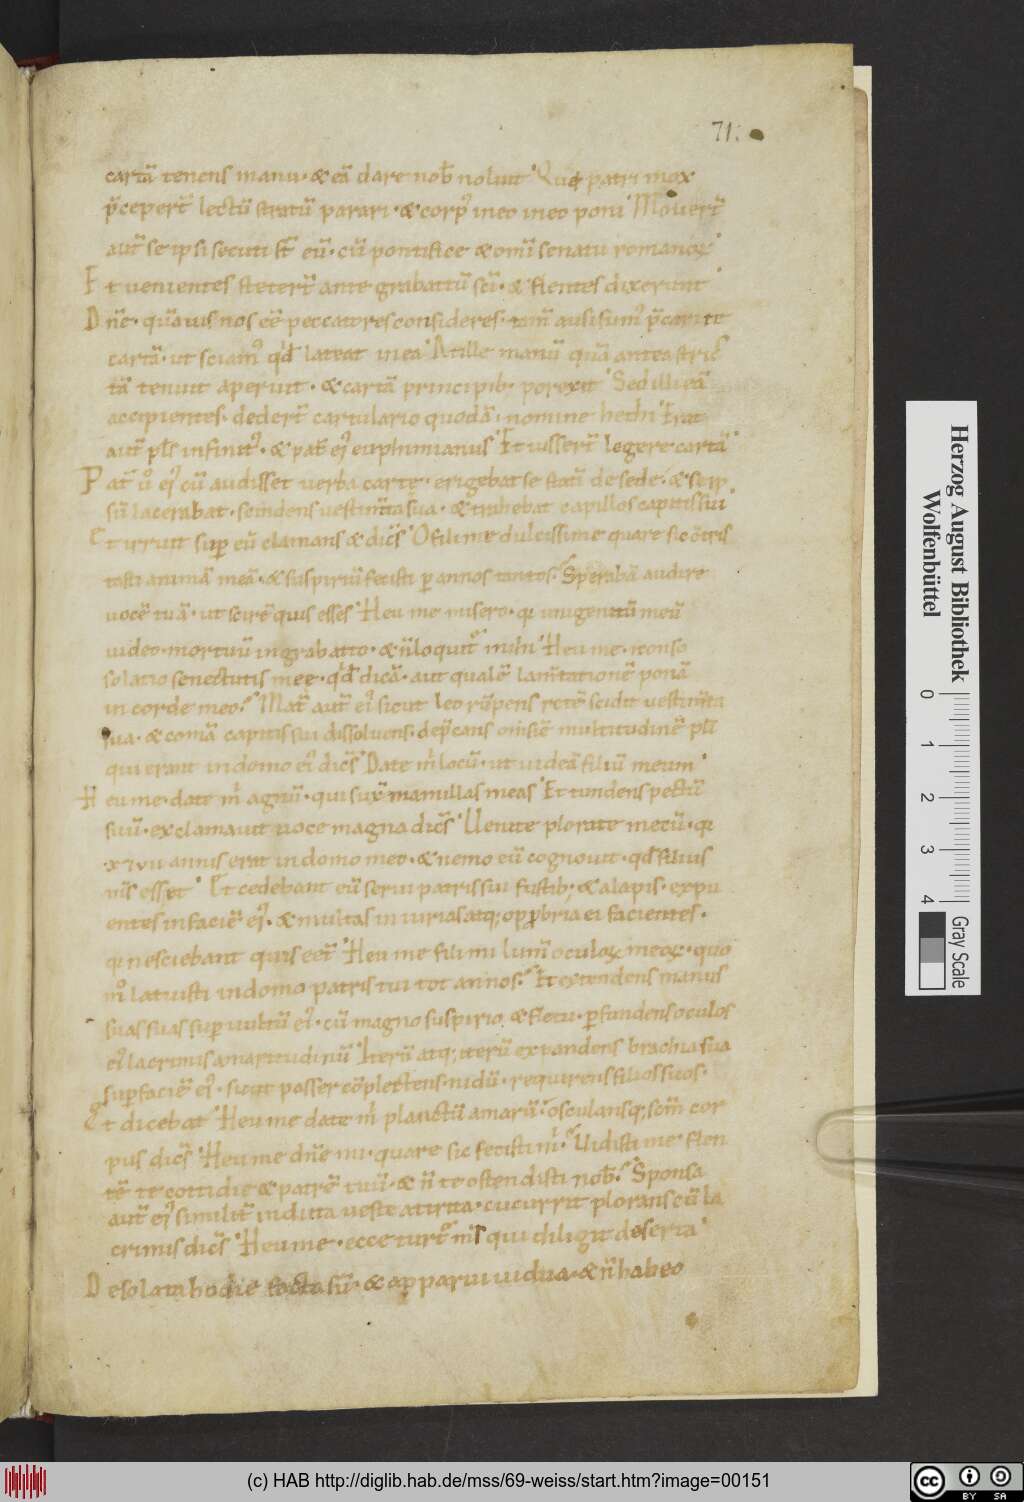 71.
cartā tenens manu · & eā dare nob̄ noluit · Qui patri mox
p̄ceper̄ lectū stratū parari · & corp' meo poni · Mouer̄t
aut̄ se ipsi secuti st̄ eū · cū pontifice & omī senatu romanoꝝ ·
Et uenientes steter̄t ante grabattū sc̄i · & flentes dixerunt ·
Dn̄e · quāuis nos eē peccatores consideres · tam̄ ausi sum' p̄cari te
cartā · ut sciam' qd̄ lateat in ea · At ille manū quā antea stric
tā tenuit aperuit · & cartā principib; porexit · Sed illi eā
accipientes · deder̄t cartulario quodā · nomine hethi · Erat
aut̄ pls̄ infinit' · & pat̄ ei' euphimianus · Et iusser̄t legere cartā ·
Pat̄ u° ei' cū audisset uerba carte · erigebat se statū de sede · & semp
sū lacerabat · scindens uestim̄ta sua · & trahebat capillos capitis sui ·
Et irruit sup eū clamans & dic̄s · O fili me dulcissime quare sic c̄tris
tasti animā meā · & suspiriū fecisti p annos tantos · Sperabā audire
uocē tuā · ut scirē quis esses · Heu me misero · q̄ unigenitū meū
uideo mortuū in grabatto · & n̄ loquit̄ mihi · Heu me ·
solatio senectutis mee · qd̄ dicā · aut qualē lam̄tationē ponā
in corde meo · Mat̄ aut̄ ei' sicut leo rūpens retē scidit uestim̄ta
sua · & comā capitis sui dissoluens · dep̄cans omnē multitudinē pls̄
qui erant in domo ei' dic̄s · Date m̄ locū · ut uideā filiū meum ·
Heu me · date m̄ agnū · qui suxit mamillas meas · Et tundens pectū
suū · exclamauit uoce magna dic̄s · Uenite plorate mecū · q̄
· xvii annis erat in domo meo · & nemo eū cognouit · qd̄ filius
m̄s esset · Et cedebant eū serui patris sui fustib; & alapis · expu
entes in faciē ei' · & multas iniurias atq; opprobria ei facientes ·
q̄ nesciebant quis eet̄ · Heu me fili mi lum̄ oculoꝝ meoꝝ · quo
m° latuisti in domo patris tui tot annos · Et extendens manus
suas suas sup uultū ei' · cū magno suspirio & fletu · pfundens oculos
ei' lacrimis amaritudinū · Iterū atq; iterū expandens brachia sua
sup faciē ei' · sicut passer cōplectens nidū · requirens filios suos ·
Et dicebat · Heu me date m̄ planctū amarū · osculansq; scm̄ cor
pus dic̄s · Heu me dn̄e mi · quare sic fecisti m̄ · Uidisti me flen
tē te cottidie & patrē tuū · & n̄ te ostendisti nob̄ · Sponsa
aut̄ ei' similit̄ induta ueste atirita · cucurrit plorans cū la
crimis dic̄s · Heu me · ecce turt̄ m̄s qui diligit deserta ·
Desolata hodie facta sū · & apparui uidua · & n̄ habeo
Herzog August Bibliothek
Wolfenbüttel
0 1 2 3 4
Gray Scale
(c) HAB http://diglib.hab.de/mss/69-weiss/start.htm?image=00151
cc BY SA